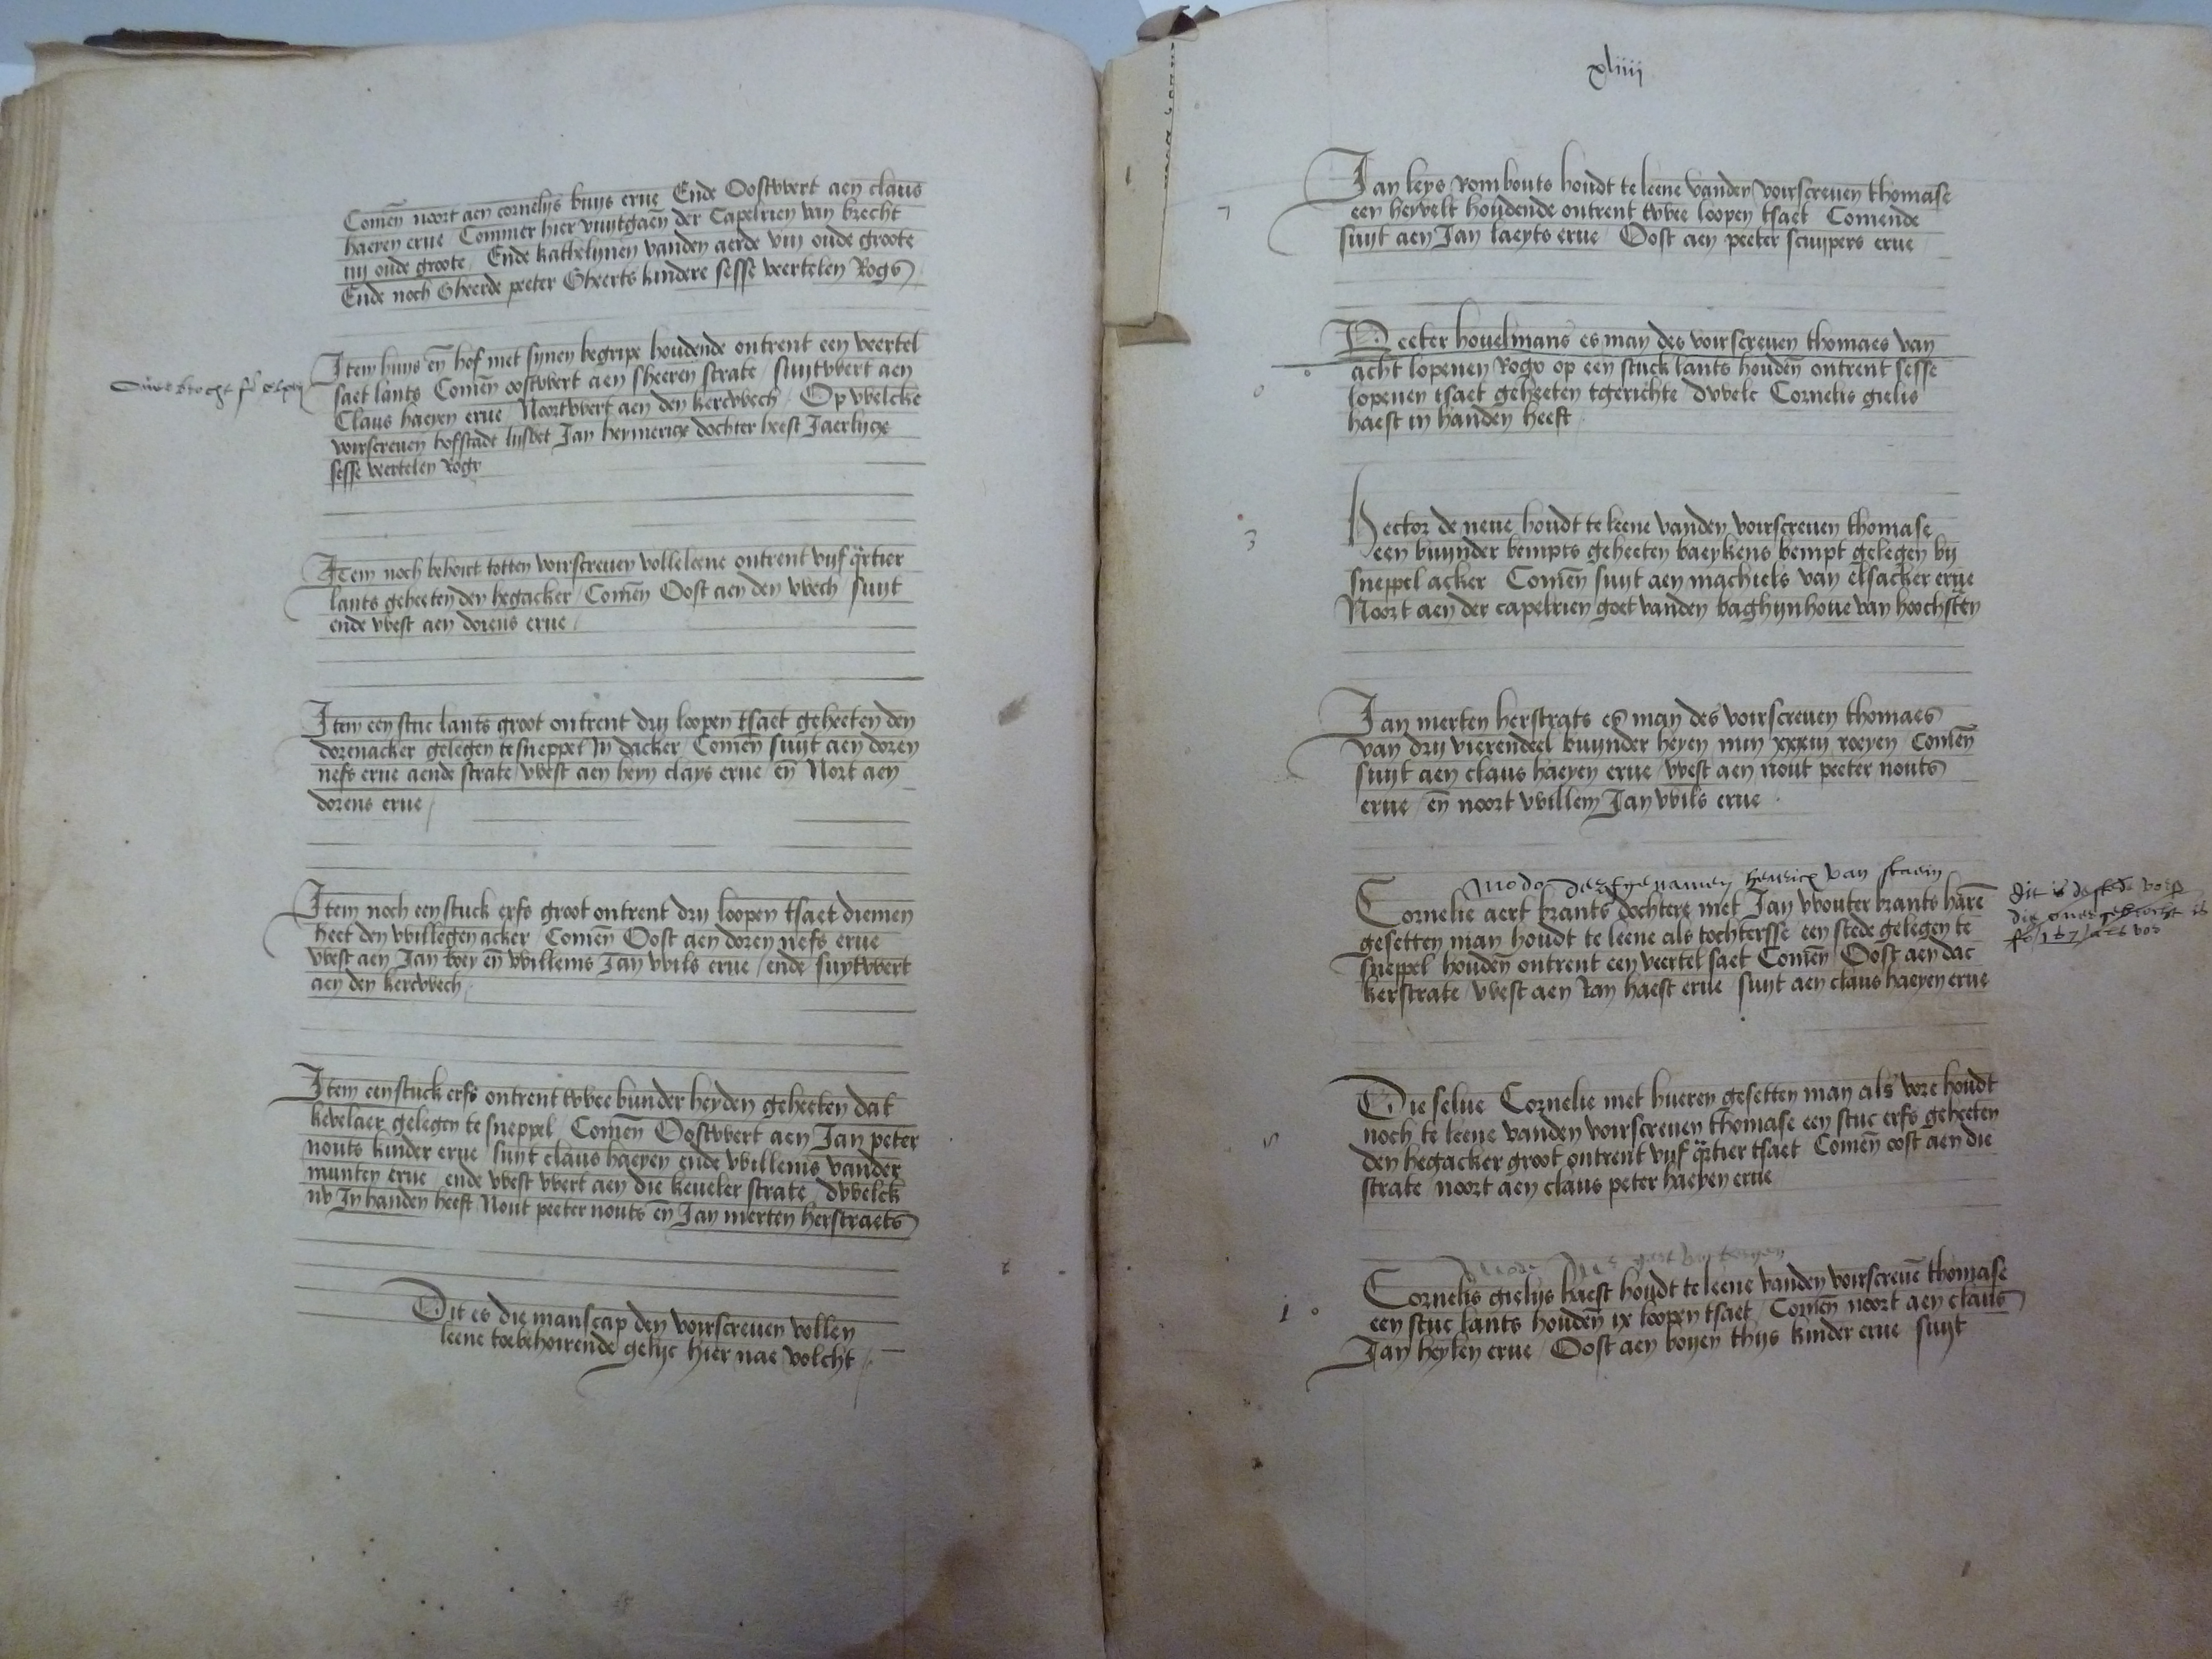 Comen noort aen cornelijs buijs erue Ende Oostwert aen claus
haeyen erue Commer hier vuytgaen der Capelrien van brecht
iiij oude groote / Ende kathelijnen vanden aerde viij oude groote
Ende noch Gheerde peeter Gheerts kindere sesse veertelen Rogs
Item huijs en hof met sijnen begripe houdende ontrent een veertel
saet lants Comen oostwert aen sheeren strate / suijtwert aen
Claus haeyen erue / Noortwert aen den kercwech / Op welcke
voirscreuen hofstadt Jan heymericx dochter heeft Jaerlijcx
sesse veertelen Rogx
Item noch behoirt totten voirscreuen volleleene ontrent vijf qrtier
lants geheeten den hegacker / Comen Oost aen den wech / suijt
ende west aen dorens erue /
Item een stuc lants groot ontrent drij loopen tsaet geheeten den
dorenacker gelegen te sneppel In dacker / Comen suijt aen doren
nefs erue aende strate / west aen heyn clays erue / en Nort aen
dorens erue /
Item noch een stuck erfs groot ontrent drij loopen tsaet diemen
heet den willegen acker / Comen Oost aen doren nefs erue
west aen Jan boey en willems Jan wils erue / ende suytwert
aen den kercwech /
Item een stuck erfs ontrent twee bunder heyden geheeten dat
kevelaer gelegen te sneppel / Comen Oostwert aen Jan peter
nouts kinder erue / suijt claus haeyen ende willems vander
munten erue / ende west wert aen die keueler strate / dwelck
nv In handen heeft Nout peeter nouts en Jan merten herstraets
Dit es die manscap den voirscreuen vollen
leene toebehoirende gelijc hier nae volcht /
xliiij
7
Jan leys Rombouts houdt te leene vanden voirscreuen thomase
een heyvelt houdende ontrent twee loopen tsaet Comende
suijt aen Jan laeyts erue / Oost aen peeter scuijpers erue
Peeter houelmans es man des voirscreuen thomaes van
acht lopenen Rogx op een stuck lants houden ontrent sesse
lopenen tsaet geheeten tgerichte / dwelc Cornelis gielis
haest in handen heeft
3
Hector de neue houdt te leene vanden voirscreuen thomase
een buijnder bempts geheeten baeykens bempt gelegen bij
sneppel acker Comen suijt aen machiels van elsacker erue
Noort aen der capelrien goet vanden baghijnhoue van hoochsten
Jan merten herstrats es man des voirscreuen thomaes
van drij vierendeel buijnder heyen min xxxiij roeyen / Comen
suijt aen claus haeyen erue / west aen nout peeter nouts
erue / en noort willem Jan wils erue
modo henricx van
Cornelie aert brants dochtere met Jan wouter brants haren
gesetten man houdt te leene als tochtersse een stede gelegen te
sneppel houden ontrent een veertel saet Comen Oost aen dac
kerstrate / west aen Jan haest erue / suijt aen claus haeyen erue
dit is de stede
5
Die selue Cornelie met hueren gesetten man als vore houdt
noch te leene vanden voirscreuen thomase een stuc erfs geheeten
den hegacker groot ontrent vijf qrtier tsaet Comen oost aen die
strate / noort aen claus peter haeyen erue
1
Cornelis gielijs haest houdt te leene vanden voirscreuen thomase
een stuc lants houden ix loopen tsaet / Comen noort aen claus
Jan heylen erue / Oost aen boyen thijs kinder erue suijt